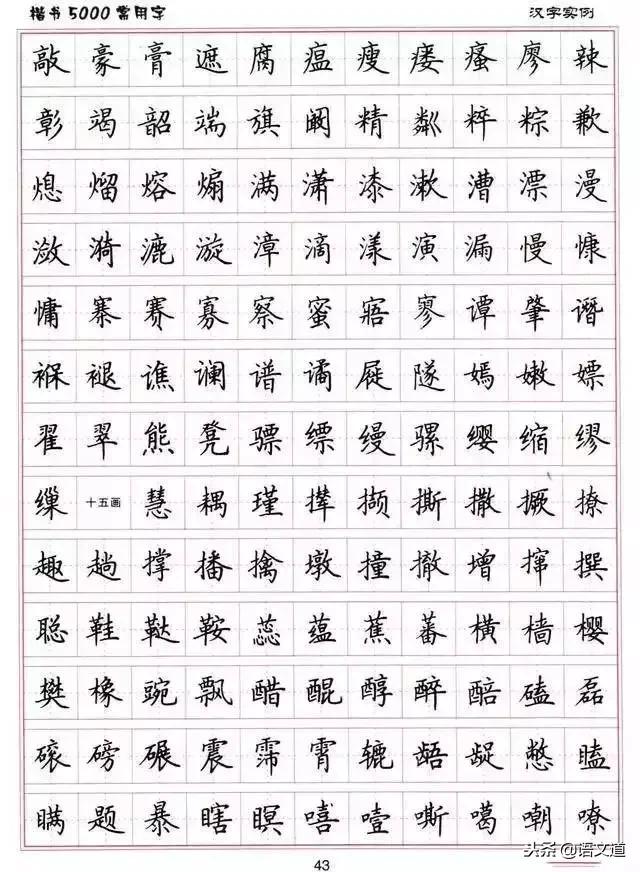 楷书5000常用字 汉字实例
敲豪膏遮腐瘟瘦瘘瘙廖辣
彰竭韶端旗阚精粼粹粽歉
熄熘熔煽满潇漆漱漕漂漫
潋漪漉漩漳滴漾演漏慢慷
慵寨赛寡察蜜寤寥谭肇谮
褓褪谯谰谱谲屣隧嫣嫩嫖
翟翠熊凳骠缥缦骡缨缩缪
缫十五画慧耦瑾撵撷撕撒撅撩
趣趟撑播擒墩撞撤增撺撰
聪鞋鞑鞍蕊蕴蕉蕃横樯樱
樊橡豌飘醋醌醇醉醅磕磊
磙磅碾震霈霄辘龉龊憋瞌
瞒题暴瞎瞑嘻噎嘶噶嘲嘹
43
头条@语文道